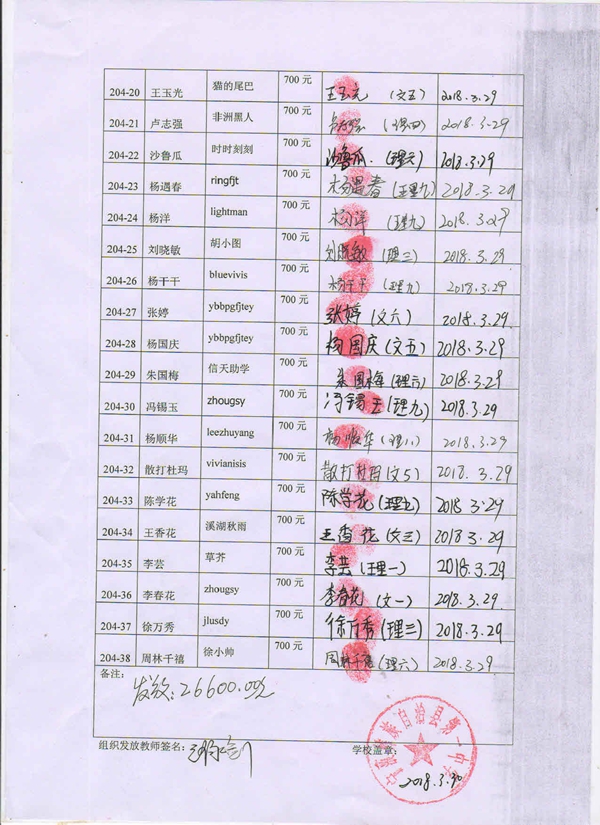 204-20 王玉光 猫的尾巴 700 元 王玉光 (文五) 2018.3.29
204-21 卢志强 非洲黑人 700 元 (理四) 2018.3.29
204-22 沙鲁瓜 时时刻刻 700 元 沙鲁瓜. (理六) 2018.3.29
204-23 杨遇春 ringfjt 700 元 杨遇春 (理九) 2018.3.29
204-24 杨洋 lightman 700 元 杨洋 (理九) 2018.3.29
204-25 刘晓敏 胡小图 700 元 刘晓敏 (理三) 2018.3.29
204-26 杨干干 bluevivis 700 元 杨干干 (理九) 2018.3.29
204-27 张婷 ybbpgfjtey 700 元 张婷 (文六) 2018.3.29.
204-28 杨国庆 ybbpgfjtey 700 元 杨国庆 (文五) 2018.3.29
204-29 朱国梅 信天助学 700 元 朱国梅 (理六) 2018.3.29
204-30 冯锡玉 zhougsy 700 元 冯锡玉 (理九) 2018.3.29
204-31 杨顺华 leezhuyang 700 元 杨顺华 (理八) 2018.3.29
204-32 散打杜玛 vivianisis 700 元 散打杜玛 (文5) 2018.3.29
204-33 陈学花 yahfeng 700 元 陈学花 (理九) 2018.3.29
204-34 王香花 溪湖秋雨 700 元 王香花 (文三) 2018.3.29
204-35 李芸 草芥 700 元 李芸 (理一) 2018.3.29.
204-36 李春花 zhougsy 700 元 李春花 (文一) 2018.3.29
204-37 徐万秀 jlusdy 700 元 徐万秀 (理三) 2018.3.29
204-38 周林千禧 徐小帅 700 元 周林千禧 (理六) 2018.3.29
备注:
发放:26600.00元
组织发放教师签名:
学校盖章:
族自治县第一中学
2018.3.30